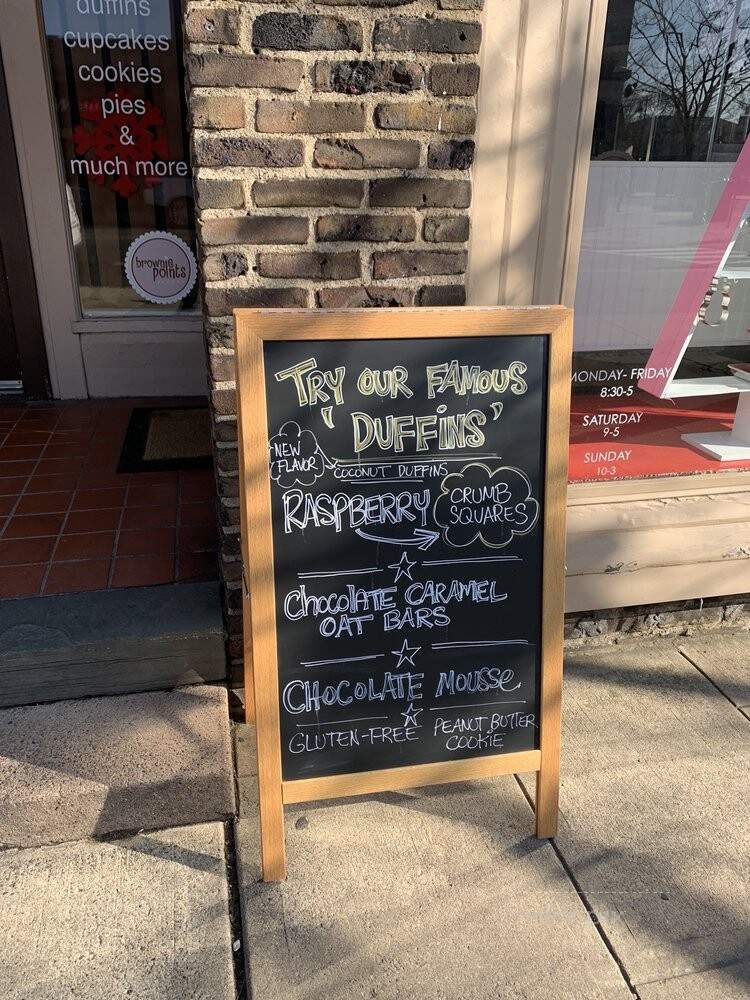 duffins
cupcakes
cookies
pies
&
much more
brownie
points
TRY OUR FAMOUS
'DUFFiNS'
NEW
FLAVOR
COCONUT DUFFINS
RASPBERRY
CRUMB
SQUARES
ChocolATE CARAMEL
OAT BARS
CHOCOLATE MOUSSe
GLUTEN-FREE
PEANUT BUTTER
COOKIE
MONDAY- FRIDAY
8:30-5
SATURDAY
9-5
SUNDAY
10-3